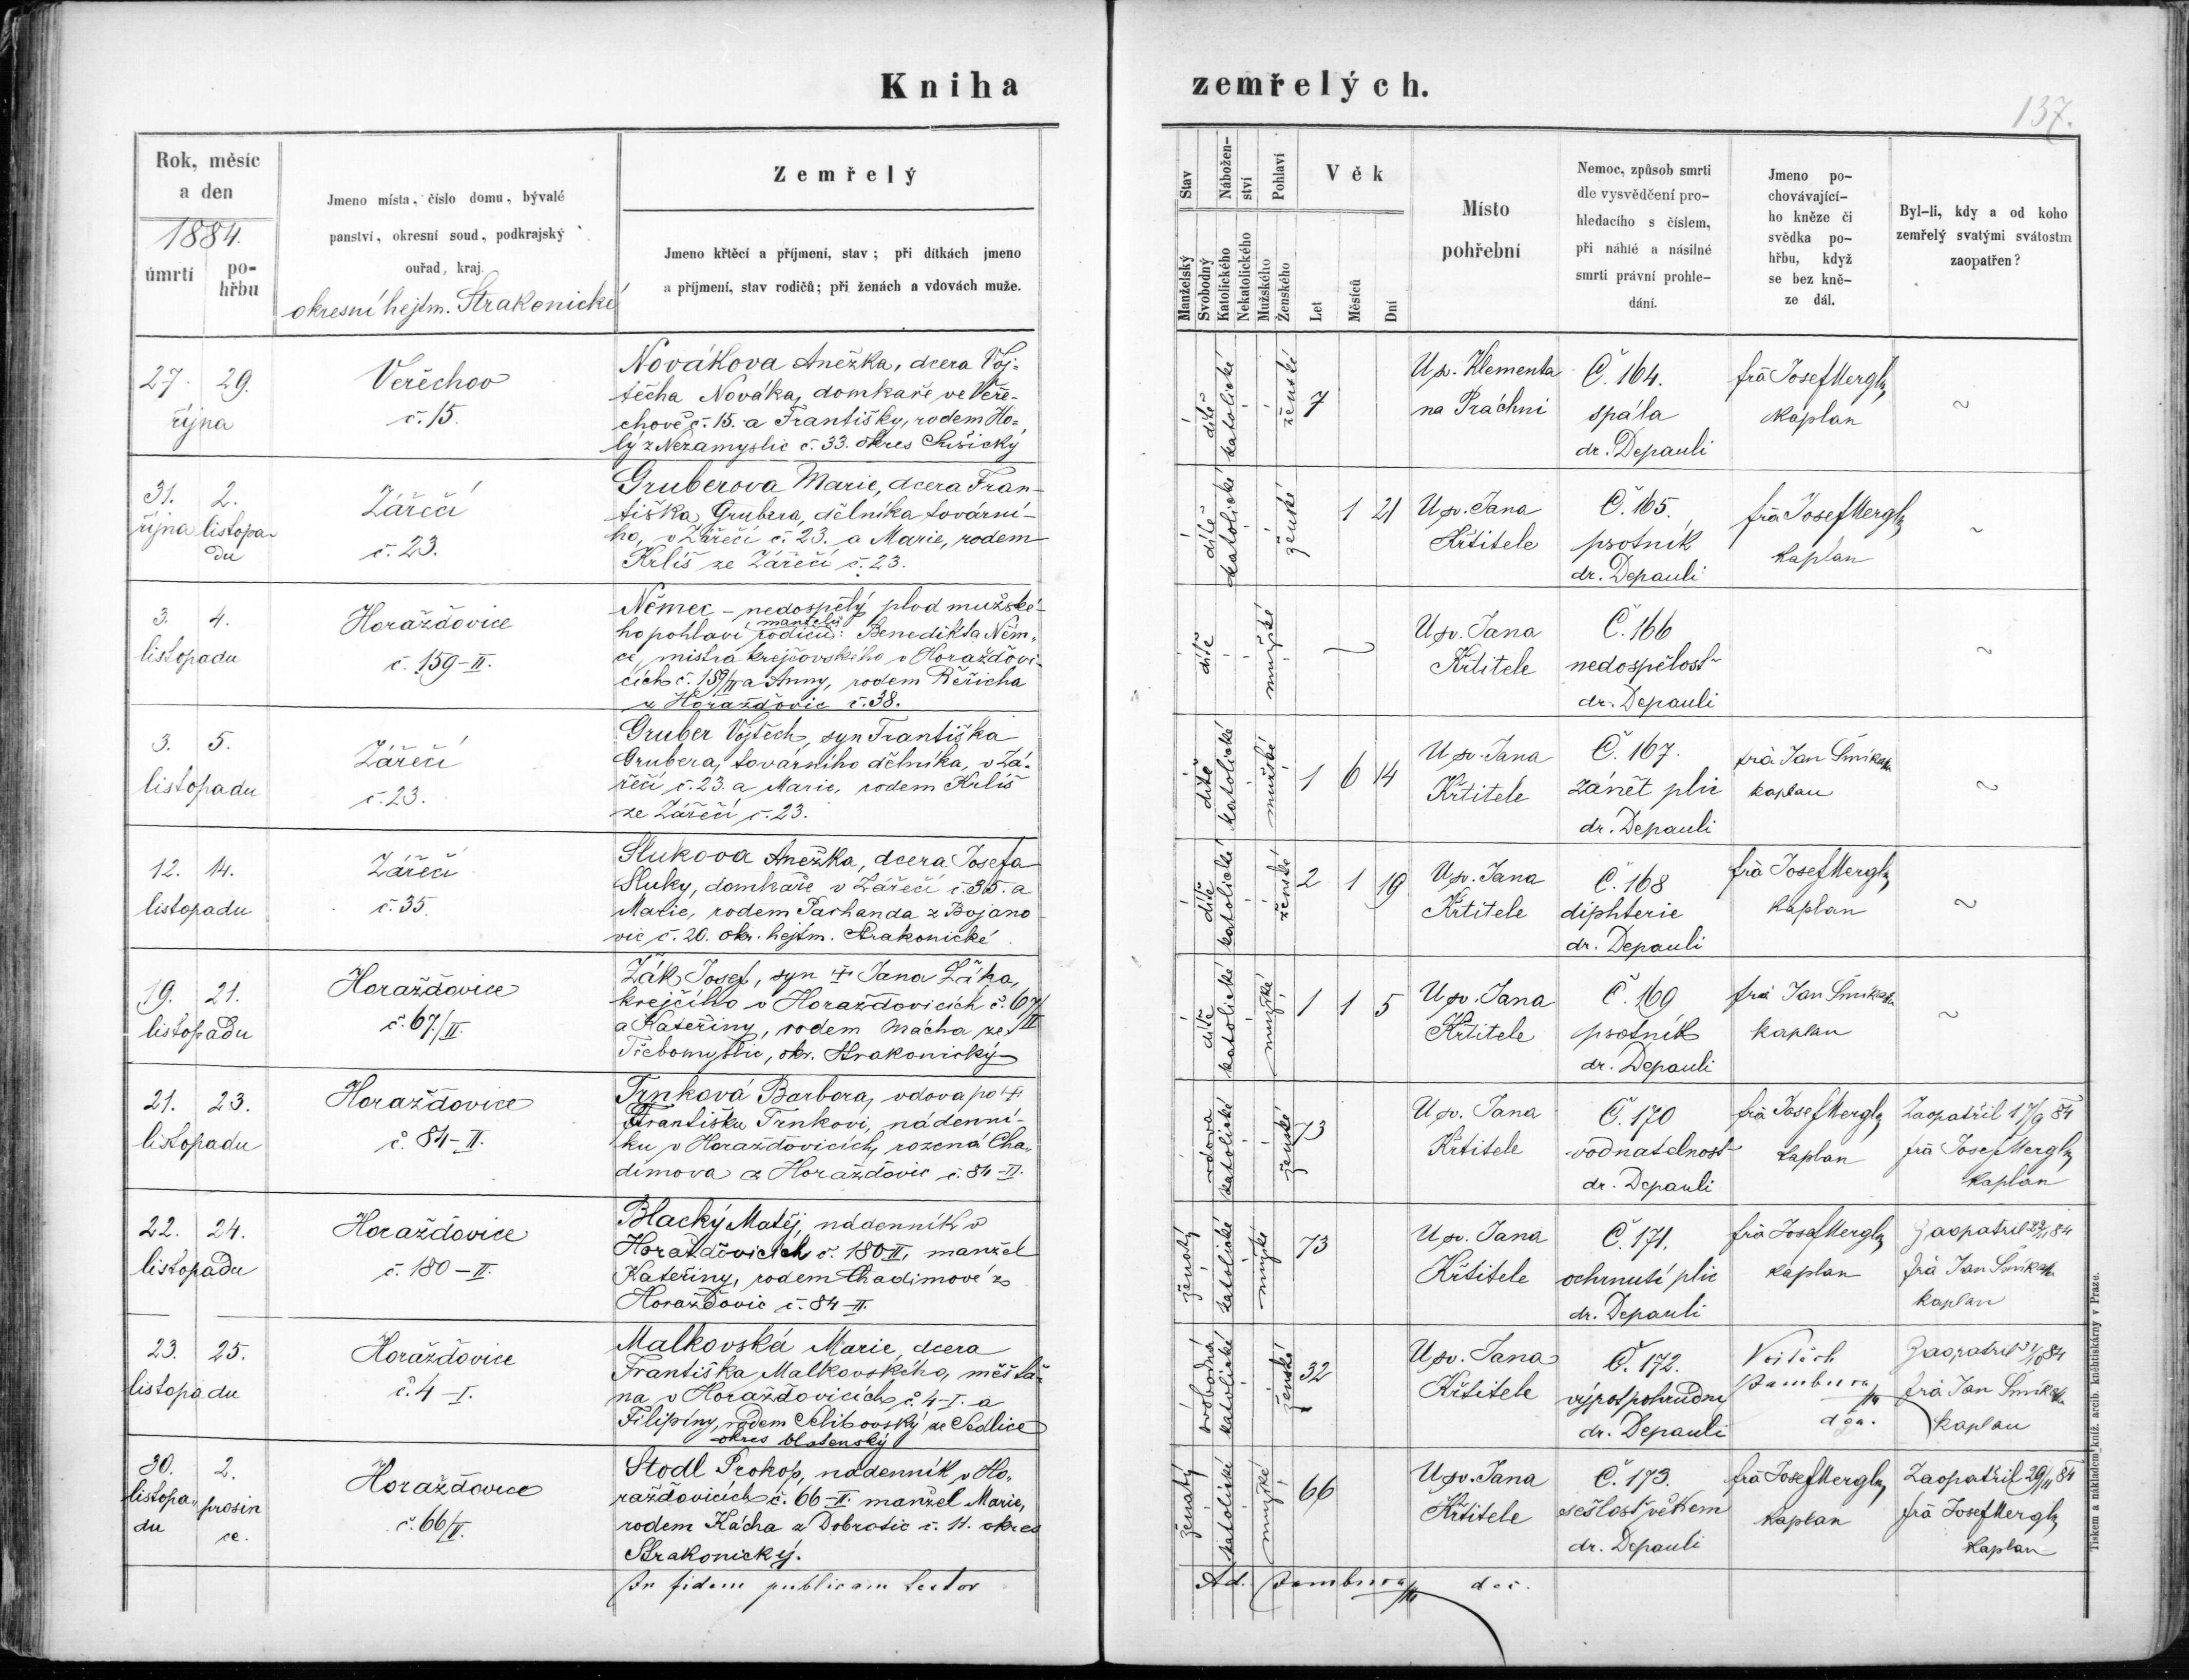 Kniha
zemřelých.
137.
Rok, měsíc
a den
1884.
úmrtí
po-
hřbu
Jmeno místa, číslo domu, bývalé
panství, okresní soud, podkrajský
ouřad, kraj.
okresní hejtm. Strakonické
Zemřelý
Jmeno křtěcí a příjmení, stav; při dítkách jmeno
a příjmení, stav rodičů; při ženách a vdovách muže.
Stav
Manželský
Svobodný
Nábožen-
ství
Katolického
Nekatolického
Pohlaví
Mužského
Ženského
Věk
Let
Měsíců
Dní
Místo
pohřební
Nemoc, způsob smrti
dle vysvědčení pro-
hledacího s číslem,
při náhlé a násilné
smrti právní prohle-
dání.
Jmeno po-
chovávající-
ho kněze či
svědka po-
hřbu, když
se bez kně-
ze dál.
Byl-li, kdy a od koho
zemřelý svatými svátostm
zaopatřen?
27. 29.
října
Veřechov
č. 15.
Nováková Anežka, dcera Voj-
těcha Nováka, domkaře ve Veře-
chově č. 15. a Františky, rodem Ho-
lý z Nezamyslic č. 33. okres Sušický
dítě
katolické
ženské
7
U sv. Klementa
na Práchni
Č. 164.
spála
dr. Depauli
frà Josef Mergl
kaplan
31. 2.
října listopa-
du
Zářečí
č. 23.
Gruberova Marie, dcera Fran-
tiška Grubera, dělníka tovární-
ho, v Zářečí č. 23. a Marie, rodem
Krliš ze Zářečí č. 23.
dítě
katolické
ženské
1 21
U sv. Jana
Křtitele
Č. 165.
psotník
dr. Depauli
frà Josef Mergl
kaplan
3. 4.
listopadu
Horažďovice
č. 159-II.
Němec - nedospělý plod mužské-
ho pohlaví manželů rodičů: Benedikta Něm-
ce, mistra krejčovského v Horažďovi-
cích č. 159/II a Anny, rodem Řeřicha
z Horažďovic č. 38.
dítě
mužské
U sv. Jana
Křtitele
Č. 166
nedospělost
dr. Depauli
3. 5.
listopadu
Zářečí
č. 23.
Gruber Vojtěch, syn Františka
Grubera, továrního dělníka, v Zá-
řečí č. 23. a Marie, rodem Krliš
ze Zářečí č. 23.
dítě
katolické
mužské
1 6 14
U sv. Jana
Křtitele
Č. 167.
zánět plic
dr. Depauli
frà Jan
kaplan
12. 14.
listopadu
Zářečí
č. 35.
Slukova Anežka, dcera Josefa
Sluky, domkáře v Zářečí č. 35. a
Marie, rodem Pachanda z Bojano
vic č. 20. okr. hejtm. Strakonické
dítě
katolické
ženské
2 1 19
U sv. Jana
Křtitele
Č. 168
diphterie
dr. Depauli
frà Josef Mergl
kaplan
19. 21.
listopadu
Horažďovice
č. 67/II.
Žák Josef, syn † Jana Žáka,
krejčího v Horažďovicích č. 67/II
a Kateřiny, rodem Mácha, ze
Třebomyslic, okr. Strakonický
dítě
katolické
mužské
1 1 5
U sv. Jana
Křtitele
Č. 169
psotník
dr. Depauli
frà Jan
kaplan
21. 23.
listopadu
Horažďovice
č. 84-II.
Trnková Barbora, vdova po †
Františku Trnkovi, nádenní-
ku v Horažďovicích, rozená Cha-
dimova z Horažďovic č. 84-II.
vdova
katolické
ženské
73
U sv. Jana
Křtitele
Č. 170
vodnatelnost
dr. Depauli
frà Josef Mergl
kaplan
Zaopatřil 17/9 84
frà Josef Mergl
kaplan
22. 24.
listopadu
Horažďovice
č. 180-II.
Blacký Matěj, nádenník v
Horažďovicích č. 180 II, manžel
Kateřiny, rodem Chadimové z
Horažďovic č. 84-II.
ženatý
katolické
mužské
73
U sv. Jana
Křtitele
Č. 171.
ochrnutí plic
dr. Depauli
frà Josef Mergl
kaplan
Zaopatřil 84
frà Jan
kaplan
23. 25.
listopadu
Horažďovice
č. 4-I.
Malkovská Marie, dcera
Františka Malkovského, měšťa-
na v Horažďovicích č. 4-I. a
Filipíny, rodem ze Sedlice
okres blatenský
svobodná
katolické
ženské
32
U sv. Jana
Křtitele
Č. 172.
výpot pohrudny
dr. Depauli
Vojtěch
Pambura
Zaopatřil 84
frà Jan
kaplan
30. 2.
listopa- prosin
du ce.
Horažďovice
č. 66/II.
Stodl Prokop, nádenník v Ho-
ražďovicích č. 66-II. manžel Marie,
rodem Kácha z Dobrotic č. 11. okres
Strakonický.
ženatý
katolické
mužské
66
U sv. Jana
Křtitele
Č. 173.
sešlost věkem
dr. Depauli
frà Josef Mergl
kaplan
Zaopatřil 29/11 84
frà Josef Mergl
kaplan
In fidem publicam testor
Ad. Pambura
Tiskem a nákladem kníž. arcib. knihtiskárny v Praze.